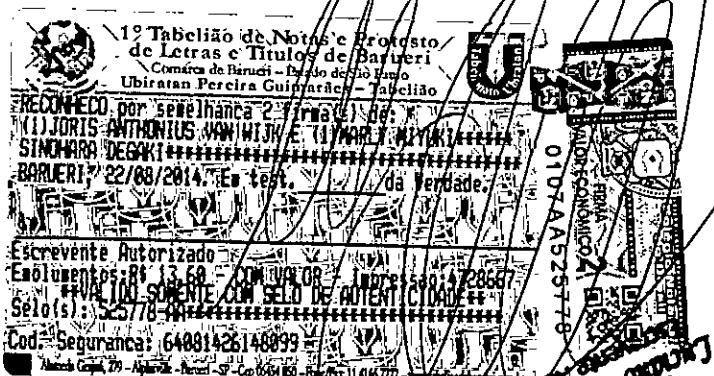 1º Tabelião de Notas e Protesto
de Letras e Títulos de Barueri
Comarca de Barueri - Estado de São Paulo
Ubiratan Pereira Guimarães - Tabelião
RECONHECO por semelhanca 2 firma(s) de:
(1)JORIS ANTHONIUS VAN WIJK E (1)MARLI MIYUKI******
SINOHARA DEGAKI************************************
BARUERI, 22/08/2014. Em test. da verdade.
Escrevente Autorizado
Emolumentos:R$ 13,60 - COM VALOR - Impressao:4728667
**VALIDO SOMENTE COM SELO DE AUTENTICIDADE**
Selo(s): 525778-AA
Cod. Seguranca: 64081426148099
779 - Alphaville - Barueri - SP
FIRMA
VALOR ECONÔMICO
0107AA525778